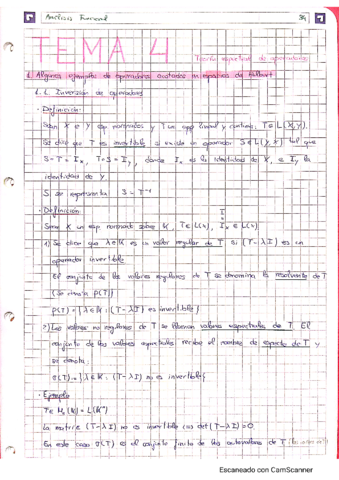 Análisis Funcional 39
TEMA 4
Teoría espectral de operadores
1. Algunos ejemplos de operadores acotados en espacios de Hilbert
1.1. Inversión de operadores
· Definición:
Sean X e Y esp. normados y T un app lineal y continua, T∈L(X,Y).
Se dice que T es invertible si existe un operador S∈L(Y,X) tal que
S∘T = I_x, T∘S = I_y, donde I_x es la identidad de X, e I_y la
identidad de Y
S se representa S = T⁻¹
· Definición:
Sean X un esp. normado sobre K, T∈L(X), I_x ∈ L(X)
1) Se dice que λ∈K es un valor regular de T si (T-λI) es un
operador invertible
El conjunto de los valores regulares de T se denomina la resolvente de T
(Se denota ρ(T))
ρ(T) = {λ∈K : (T-λI) es invertible}
2) Los valores no regulares de T se llaman valores espectrales de T. El
conjunto de los valores espectrales recibe el nombre de espectro de T y
se denota:
σ(T) = {λ∈K : (T-λI) no es invertible}
· Ejemplo
T∈ Mₙ(K) = L(Kⁿ)
La matriz (T-λI) no es invertible ⟺ det(T-λI)=0
En este caso σ(T) es el conjunto finito de los autovalores de T
Escaneado con CamScanner